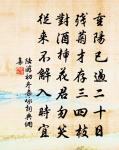 重陽已過二十日
殘菊才存三四枝
對酒插花君勿笑
從來不解入時宜
陸游初冬雜詠詞典網
集